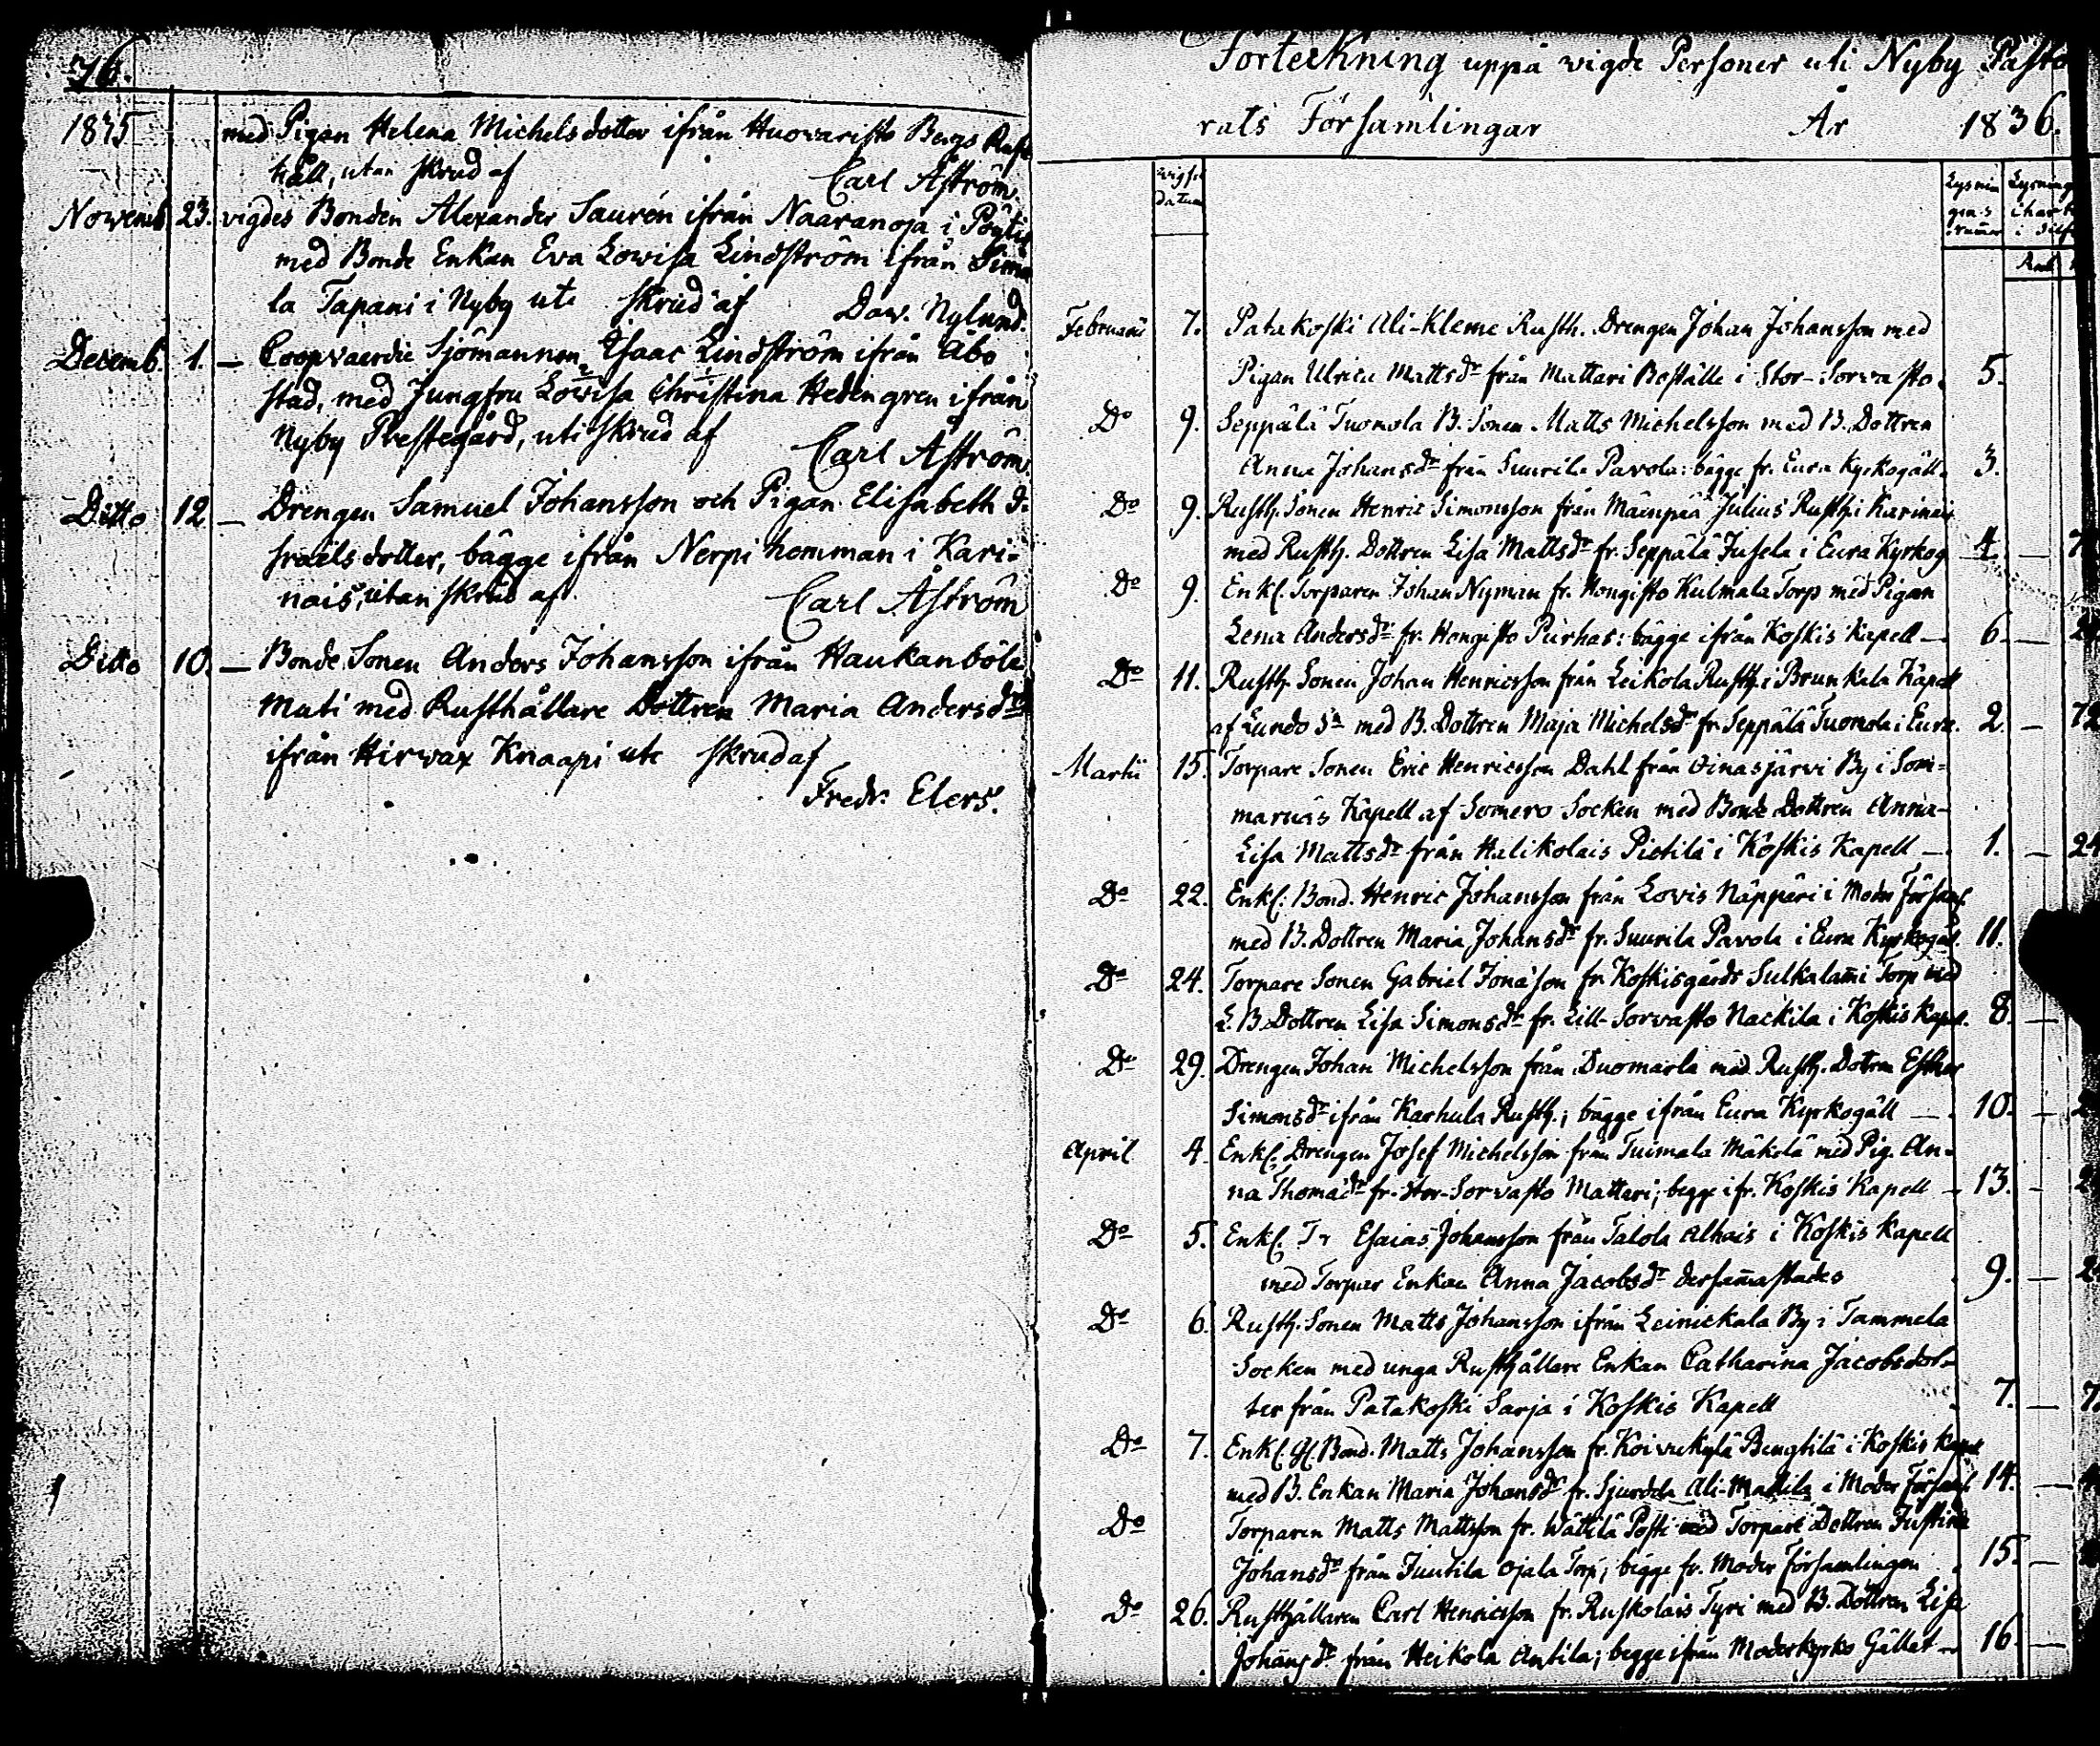 76.
1835
med Pigan Helena Michelsdotter ifrån Huovaristo Bergs Rust
håll, utan skrud af Carl Åström.
Novemb. 23. vigdes Bonden Alexander Saurén ifrån Naaranoja i Pöytis
med Bonde Enkan Eva Lovisa Lindström ifrån Sima
la Tapani i Nyby uti skrud af Dav. Nylund.
Decemb. 1. — Coopvaerdie Sjömannen Isaac Lindström ifrån Åbo
stad, med Jungfru Lovisa Christina Hedengren ifrån
Nyby Prestegård, uti skrud af Carl Åström.
Ditto 12. — Drengen Samuel Johansson och Pigan Elisabeth I-
sraels dotter, bägge ifrån Nerpi homman i Kari-
nais, utan skrud af. Carl Åström
Ditto 10. — Bonde Sonen Anders Johansson ifrån Haukanböle
Muti med Rusthållare Dottren Maria Andersdr
ifrån Hirvax Knaapi uti skrud af
Fredr. Elers.
Förteckning uppå vigde Personer uti Nyby Pasto
rats Församlingar År 1836.
vigsel datum
Februarii 7. Patakoski Ali-Kleme Rusth. Drengen Johan Johansson med
Pigan Ulrica Mattsdr från Mattari Boställe i Stor-Sorvasto. 5.
Do 9. Seppälä Tuomola B. Sonen Matts Michelsson med B. Dottren
Anna Johansdr från Suurila Pavola: bägge fr. Eura Kyrkogäll. 3.
Do 9. Rusth. Sonen Henric Simonsson från Mäenpää Julius Rusth. i Karinais
med Rusth. Dottren Lisa Mattsdr fr. Seppälä Jusela i Eura Kyrkog. 4. —
Do 9. Enkl. Torparen Johan Nyman fr. Hongisto Kulmala Torp med Pigan
Lena Andersdr fr. Hongisto Purhas: bägge ifrån Koskis Kapell — 6. —
Do 11. Rusth. Sonen Johan Henricsson från Leikola Rusth. i Brunkala Kapell
af Lundo Sn med B. Dottren Maja Michelsdr fr. Seppälä Tuomola i Eura. 2. —
Martii 15. Torpare Sonen Eric Henricsson Dahl från Oinasjärvi By i Som-
marnäs Kapell af Somero Socken med Bonde Dottren Anna-
Lisa Mattsdr från Halikolais Pietilä i Koskis Kapell — 1. — 24
Do 22. Enkl. Bond. Henric Johansson från Lovis Näppäri i Moder Församl.
med B. Dottren Maria Johansdr fr. Suurila Pavola i Eura Kyrkogäl. 11.
Do 24. Torpare Sonen Gabriel Jonasson fr. Koskisgårds Sulkalami Torp med
L. B. Dottren Lisa Simonsdr fr. Lill-Sorvasto Nackila i Koskis Kapel. 8. —
Do 29. Drengen Johan Michelsson från Duomarla med Rusth. Dotren Esther
Simonsdr ifrån Karhula Rusth.; bägge ifrån Eura Kyrkogäll — 10. —
April 4. Enkl. Drengen Josef Michelsson från Tuimala Mäkelä med Pig. An-
na Thomaedr fr. Stor-Sorvasto Mattari; begge ifr. Koskis Kapell — 13. —
Do 5. Enkl. Tr Esaias Johansson från Talola Alhais i Koskis Kapell
med Torpar Enkan Anna Jacobsdr dersammastädes 9. —
Do 6. Rusth. Sonen Matts Johansson ifrån Leinickala By i Tammela
Socken med unga Rusthållare Enkan Catharina Jacobsdot-
ter från Patakoski Sarja i Koskis Kapell 7. —
Do 7. Enkl. Gl. Bond. Matts Johansson fr. Koivukylä Bengtilä i Koskis Kapel
med B. Enkan Maria Johansdr fr. Sjurdda Ali-Matila i Moder Församl. 14. —
Do Torparen Matts Mattsson fr. Wättilä Poste med Torpare Dottren Justina
Johansdr från Juutila Ojala Torp; bägge fr. Moder Församlingen 15. —
Do 26. Rusthållaren Carl Henricsson fr. Ruskolais Tyri med B. Dottren Lisa
Johansdr från Heikola Antila; begge ifrån Moderkyrko Gället — 16. —